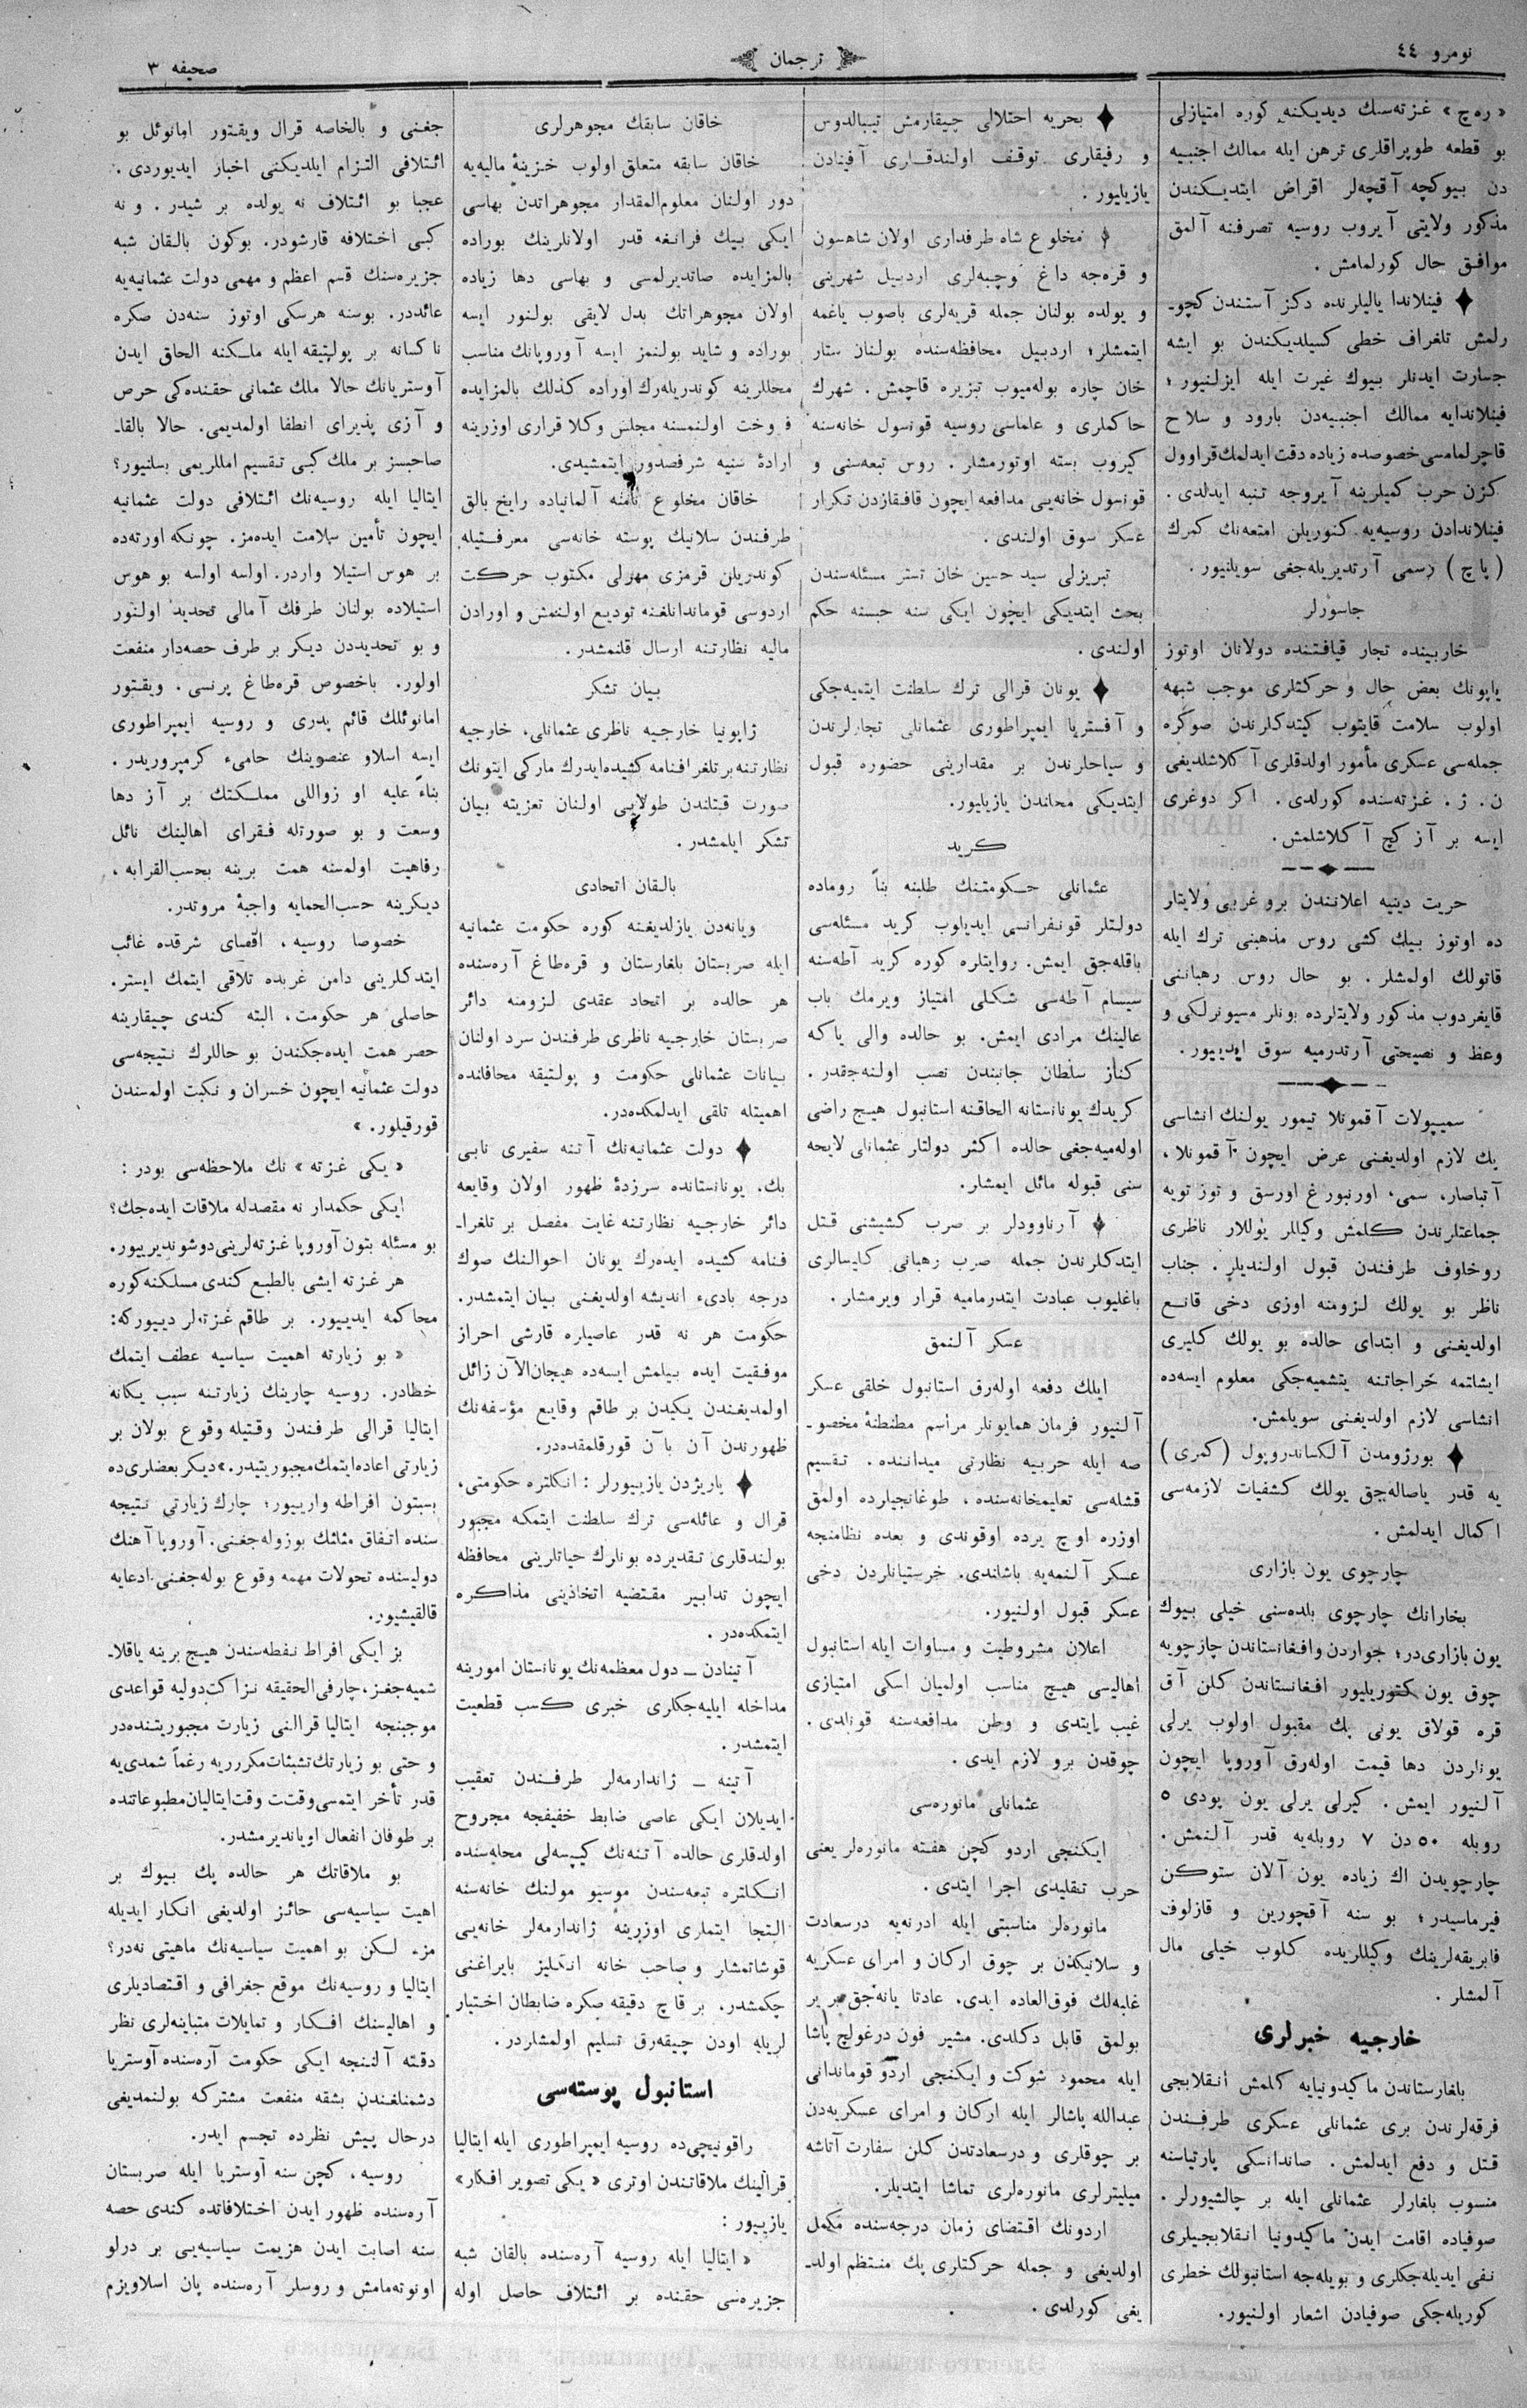 نومرو ٤٤
ترجمان
صحیفه ٣
« ره‌چ » غزته‌سنك دیدیكنه كوره امتیازلی
بو قطعه طوپراقلری ترهن ایله ممالك اجنبیه
دن بیوكچه آقچه‌لر اقراض ایتدیكندن
مذكور ولایتی آیروب روسیه تصرفنه آلمق
موافق حال كورلمامش .
فینلاندا یالیلرنده دكز آستندن كچو-
رلمش تلغراف خطی كسیلدیكندن بو ایشه
جسارت ایدنلر بیوك غیرت ایله ایزلنیور ؛
فینلاندایه ممالك اجنبیه‌دن بارود و سلاح
قاچرلمامسی خصوصده زیاده دقت ایدلمك قراوول
كزن حرب كمیلرینه آیروجه تنبه ایدلدی .
فینلاندادن روسیه‌یه كتوریلن امتعه‌نك كمرك
( پاچ ) رسمی آرتدیریله‌جغی سویلنیور .
جاسوزلر
خاربینده تجار قیافتنده دولانان اوتوز
یاپونك بعض حال و حركتلری موجب شبهه
اولوب سلامت قایتوب كیتدكلرندن صوكره
جمله‌سی عسكری مأمور اولدقلری آكلاشلدیغی
ن . ژ . غزته‌سنده كورلدی . اكر دوغری
ایسه بر آز كچ آكلاشلمش .
حریت دینیه اعلانندن برو غربی ولایتلر
ده اوتوز بیك كشی روس مذهبنی ترك ایله
قاتولك اولمشلر . بو حال روس رهباننی
قایغردوب مذكور ولایتلرده بونلر مسیونرلكی و
وعظ و نصیحتی آرتدرمیه سوق ایدییور .
سمیپولات آقمونلا تیمور یولنك انشاسی
پك لازم اولدیغنی عرض ایچون آقمونلا ،
آتباصار ، سمی ، اورنبورغ اورسق و توز توپه
جماعتلرندن كلمش وكیللر یوللار ناظری
روخلوف طرفندن قبول اولندیلر . جناب
ناظر بو یولك لزومنه اوزی دخی قانع
اولدیغنی و ابتدای حالده بو یولك كلیری
ایشلتمه خراجاتنه یتشمیه‌جكی معلوم ایسه‌ده
انشاسی لازم اولدیغنی سویلمش.
بورژومدن آلكساندروپول ( كمری )
یه قدر یاصاله‌جق یولك كشفیات لازمه‌سی
اكمال ایدلمش .
چارچوی یون بازاری
بخارانك چارچوی بلده‌سنی خیلی بیوك
یون بازاری‌در ؛ جواردن و افغانستاندن چارچویه
چوق یون كتوریلیور افغانستاندن كلن آق
قره قولاق یونی پك مقبول اولوب یرلی
یونلردن دها قیمت اوله‌رق آوروپا ایچون
آلنیور ایمش . كیرلی یرلی یون پودی ٥
روبله ٥٠ دن ٧ روبله‌یه قدر آلنمش .
چارچویدن اك زیاده یون آلان ستوكن
فیرماسیدر ؛ بو سنه آقچورین و قازلوف
فابریقه‌لرینك وكیللریده كلوب خیلی مال
آلمشلر .
خارجیه خبرلری
بلغارستاندن ماكیدونیایه كلمش انقلابجی
فرقه‌لرندن بری عثمانلی عسكری طرفندن
قتل و دفع ایدلمش . صاندانسكی پارتیاسنه
منسوب بلغارلر عثمانلی ایله بر چالشیورلر .
صوفیاده اقامت ایدن ماكیدونیا انقلابجیلری
نفی ایدیله‌جكلری و بویله‌جه استانبولك خطری
كوریله‌جكی صوفیادن اشعار اولنیور.
بحریه احتلالی چیقارمش تیبالدوس
و رفیقلری توقف اولندقلری آفینادن
یازیلیور .
مخلوع شاه طرفداری اولان شاهسون
و قره‌جه داغ كوچبه‌لری اردبیل شهرینی
و یولده بولنان جمله قریه‌لری باصوب یاغمه
ایتمشلر ؛ اردبیل محافظه‌سنده بولنان ستار
خان چاره بوله‌میوب تبریزه قاچمش . شهرك
حاكملری و علماسی روسیه قونسول خانه‌سنه
كیروب بسته اوتورمشلر . روس تبعه‌سنی و
قونسول خانه‌یی مدافعه ایچون قافقازدن تكرار
عسكر سوق اولندی .
تبریزلی سید حسین خان تستر مسئله‌سندن
بحث ایتدیكی ایچون ایكی سنه حبسنه حكم
اولندی .
یونان قرالی ترك سلطنت ایتمیه‌جكی
و آفستریا ایمپراطوری عثمانلی تجارلرندن
و سیاحلرندن بر مقدارینی حضوره قبول
ایتدیكی محلندن یازیلیور.
كرید
عثمانلی حكومتنك طلبنه بناً روماده
دولتلر قونفرانسی ایدیلوب كرید مسئله‌سی
باقله‌جق ایمش . روایتلره كوره كرید آطه‌سنه
سیسام آطه‌سی شكلی امتیاز ویرمك باب
عالینك مرادی ایمش. بو حالده والی یاكه
كناز سلطان جانبندن نصب اولنه‌جقدر .
كریدك یونانستانه الحاقنه استانبول هیچ راضی
اوله‌میه‌جغی حالده اكثر دولتلر عثمانلی لایحه
سنی قبوله مائل ایمشلر.
آرناوودلر بر صرب كشیشنی قتل
ایتدكلرندن جمله صرب رهبانی كلیسالری
باغلیوب عبادت ایتدرمامیه قرار ویرمشلر .
عسكر آلنمق
ایلك دفعه اوله‌رق استانبول خلقی عسكر
آلنیور فرمان همایونلر مراسم مطنطنهٔ مخصو-
صه ایله حربیه نظارتی میداننده . تقسیم
قشله‌سی تعلیمخانه‌سنده ، طوغانجیلرده اولمق
اوزره اوچ یرده اوقوندی و بعده نظامنجه
عسكر آلنمه‌یه باشلندی. خرستیانلردن دخی
عسكر قبول اولنیور.
اعلان مشروطیت و مساوات ایله استانبول
اهالیسی هیچ مناسب اولمیان اسكی امتیازی
غیب ایتدی و وطن مدافعه‌سنه قونلدی .
چوقدن برو لازم ایدی .
عثمانلی مانوره‌سی
ایكنجی اردو كچن هفته مانوره‌لر یعنی
حرب تقلیدی اجرا ایتدی .
مانوره‌لر مناسبتی ایله ادرنه‌یه درسعادت
و سلانیكدن بر چوق اركان و امرای عسكریه
غلبه‌لك فوق‌العاده ایدی. عادتا یانه‌جق بر یر
بولمق قابل دكلدی. مشیر فون درغولچ پاشا
ایله محمود شوكت و ایكنجی اردو قوماندانی
عبدالله پاشالر ایله اركان و امرای عسكریه‌دن
بر چوقلری و درسعادتدن كلن سفارت آتاشه
میلیترلری مانوره‌لری تماشا ایتدیلر.
اردونك اقتضای زمان درجه‌سنده مكمل
اولدیغی و جمله حركتلری پك منتظم اولد-
یغی كورلدی .
خاقان سابقك مجوهرلری
خاقان سابقه متعلق اولوب خزینهٔ مالیه‌یه
دور اولنان معلوم‌المقدار مجوهراتدن بهاسی
ایكی بیك فرانغه قدر اولانلرینك بوراده
بالمزایده صاتدیرلمسی و بهاسی دها زیاده
اولان مجوهراتك بدل لایقی بولنور ایسه
بوراده و شاید بولنمز ایسه آوروپانك مناسب
محللرینه كوندریله‌رك اوراده كذلك بالمزایده
فروخت اولنمسنه مجلس وكلا قراری اوزرینه
ارادهٔ سنیه شرفصدور ایتمشیدی.
خاقان مخلوع نامنه آلمانیاده رایخ بانق
طرفندن سلانیك پوسته خانه‌سی معرفتیله
كوندریلن قرمزی مهرلی مكتوب حركت
اردوسی قوماندانلغنه تودیع اولنمش و اورادن
مالیه نظارتنه ارسال قلنمشدر.
بیان تشكر
ژاپونیا خارجیه ناظری عثمانلی، خارجیه
نظارتنه بر تلغرافنامه كشیده ایدرك ماركی ایتونك
صورت قتلندن طولایی اولنان تعزیته بیان
تشكر ایلمشدر.
بالقان اتحادی
ویانه‌دن یازلدیغنه كوره حكومت عثمانیه
ایله صربستان بلغارستان و قره‌طاغ آره‌سنده
هر حالده بر اتحاد عقدی لزومنه دائر
صربستان خارجیه ناظری طرفندن سرد اولنان
بیانات عثمانلی حكومت و پولتیقه محافلنده
اهمیتله تلقی ایدلمكده‌در.
دولت عثمانیه‌نك آتنه سفیری نابی
بك، یونانستانده سرزدهٔ ظهور اولان وقایعه
دائر خارجیه نظارتنه غایت مفصل بر تلغرا-
فنامه كشیده ایده‌رك یونان احوالنك صوك
درجه بادیء اندیشه اولدیغنی بیان ایتمشدر.
حكومت هر نه قدر عاصیلره قارشی احراز
موفقیت ایده بیلمش ایسه‌ده هیجان‌الآن زائل
اولمدیغندن یكیدن بر طاقم وقایع مؤسفه‌نك
ظهورندن آن بآن قورقلمقده‌در.
پاریژدن یازییورلر : انكلتره حكومتی،
قرال و عائله‌سی ترك سلطنت ایتمكه مجبور
بولندقلری تقدیرده بونلرك حیاتلرینی محافظه
ایچون تدابیر مقتضیه اتخاذینی مذاكره
ایتمكده‌در .
آتینادن ــ دول معظمه‌نك یونانستان امورینه
مداخله ایلیه‌جكلری خبری كسب قطعیت
ایتمشدر .
آتینه ــ ژاندارمه‌لر طرفندن تعقیب
ایدیلان ایكی عاصی ضابط خفیفجه مجروح
اولدقلری حالده آتنه‌نك كیپسه‌لی محله‌سنده
انكلتره تبعه‌سندن موسیو مولنك خانه‌سنه
التجا ایتملری اوزرینه ژاندارمه‌لر خانه‌یی
قوشاتمشلر و صاحب خانه انكلیز بایراغنی
چكمشدر. بر قاچ دقیقه صكره ضابطان اختیار
لریله اودن چیقه‌رق تسلیم اولمشلردر.
استانبول پوسته‌سی
راقونیجی‌ده روسیه ایمپراطوری ایله ایتالیا
قرالینك ملاقاتندن اوتری « یكی تصویر افكار»
یازییور :
« ایتالیا ایله روسیه آره‌سنده بالقان شبه
جزیره‌سی حقنده بر ائتلاف حاصل اوله
جغنی و بالخاصه قرال ویقتور امانوئل بو
ائتلافی التزام ایلدیكنی اخبار ایدیوردی .
عجبا بو ائتلاف نه یولده بر شیدر . و نه
كبی اختلافه قارشودر. بوكون بالقان شبه
جزیره‌سنك قسم اعظم و مهمی دولت عثمانیه‌یه
عائددر. بوسنه هرسكی اوتوز سنه‌دن صكره
ناكسانه بر پولیتیقه ایله ملكنه الحاق ایدن
آوستریانك حالا ملك عثمانی حقنده‌كی حرص
و آزی پذیرای انطفا اولمدیمی. حالا بالقا-
صاحبسز بر ملك كبی تقسیم امللریمی بسلنیور؟
ایتالیا ایله روسیه‌نك ائتلافی دولت عثمانیه
ایچون تأمین سلامت ایده‌مز. چونكه اورته‌ده
بر هوس استیلا واردر. اولسه اولسه بو هوس
استیلاده بولنان طرفك آمالی تحدید اولنور
و بو تحدیددن دیكر بر طرف حصه‌دار منفعت
اولور. باخصوص قره‌طاغ پرنسی . ویقتور
امانوئلك قائم پدری و روسیه ایمپراطوری
ایسه اسلاو عنصوینك حامیء كرمپروریدر .
بناءً علیه او زواللی مملكتك بر آز دها
وسعت و بو صورتله فقرای اهالینك نائل
رفاهیت اولمسنه همت برینه بحسب‌القرابه ،
دیكرینه حسب‌الحمایه واجبهٔ مروتدر.
خصوصا روسیه ، اقصای شرقده غائب
ایتدكلرینی دامن غربده تلاقی ایتمك ایستر.
حاصلی هر حكومت ، البته كندی چیقارینه
حصر همت ایده‌جكندن بو حاللرك نتیجه‌سی
دولت عثمانیه ایچون خسران و نكبت اولمسندن
قورقیلور. »
« یكی غزته » نك ملاحظه‌سی بودر :
ایكی حكمدار نه مقصدله ملاقات ایده‌جك؟
بو مسئله بتون آوروپا غزته‌لرینی دوشوندیرییور.
هر غزته ایشی بالطبع كندی مسلكنه كوره
محاكمه ایدییور. بر طاقم غزته‌لر دییوركه:
« بو زیارته اهمیت سیاسیه عطف ایتمك
خطادر. روسیه چارینك زیارتنه سبب یكانه
ایتالیا قرالی طرفندن وقتیله وقوع بولان بر
زیارتی اعاده ایتمك مجبوریتیدر. » دیكر بعضلری ده
بستون افراطه وارییور ؛ چارك زیارتی نتیجه
سنده اتفاق مثلثك بوزوله‌جغنی، آوروپا آهنك
دولیسنده تحولات مهمه وقوع بوله‌جغنی ادعایه
قالقیشیور.
بز ایكی افراط نقطه‌سندن هیچ برینه یاقلا-
شمیه‌جغز ، چار فی‌الحقیقه نزاكت دولیه قواعدی
موجبنجه ایتالیا قرالنی زیارت مجبوریتنده‌در
و حتی بو زیارتك تشبثات مكررریه رغماً شمدی‌یه
قدر تأخر ایتمسی وقت‌ت وقت ایتالیان مطبوعاتنده
بر طوفان انفعال اویاندیرمشدر.
بو ملاقاتك هر حالده پك بیوك بر
اهیت سیاسیه‌سی حائز اولدیغی انكار ایدیله
مزء لكن بو اهمیت سیاسیه‌نك ماهیتی نه‌در؟
ایتالیا و روسیه‌نك موقع جغرافی و اقتصادیلری
و اهالیسنك افكار و تمایلات متباینه‌لری نظر
دقته آلننجه ایكی حكومت آره‌سنده آوستریا
دشمنلغندن بشقه منفعت مشتركه بولنمدیغی
درحال پیش نظرده تجسم ایدر.
روسیه ، كچن سنه آوستریا ایله صربستان
آره‌سنده ظهور ایدن اختلافاتده كندی حصه
سنه اصابت ایدن هزیمت سیاسیه‌یی بر درلو
اونوته‌مامش و روسلر آره‌سنده پان اسلاویزم